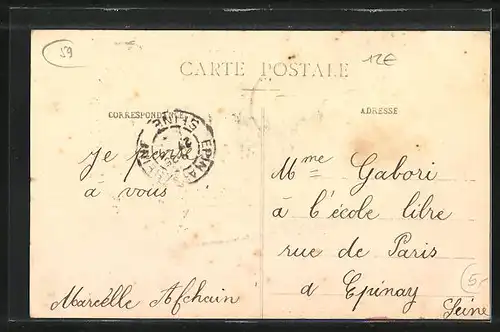 59
12€
CARTE POSTALE
CORRESPONDANCE
ADRESSE
EPINAY
SEINE
Je pense
à vous
Marcelle Afchain
Mme Gabori
à l'école libre
rue de Paris
à Epinay
Seine
5-